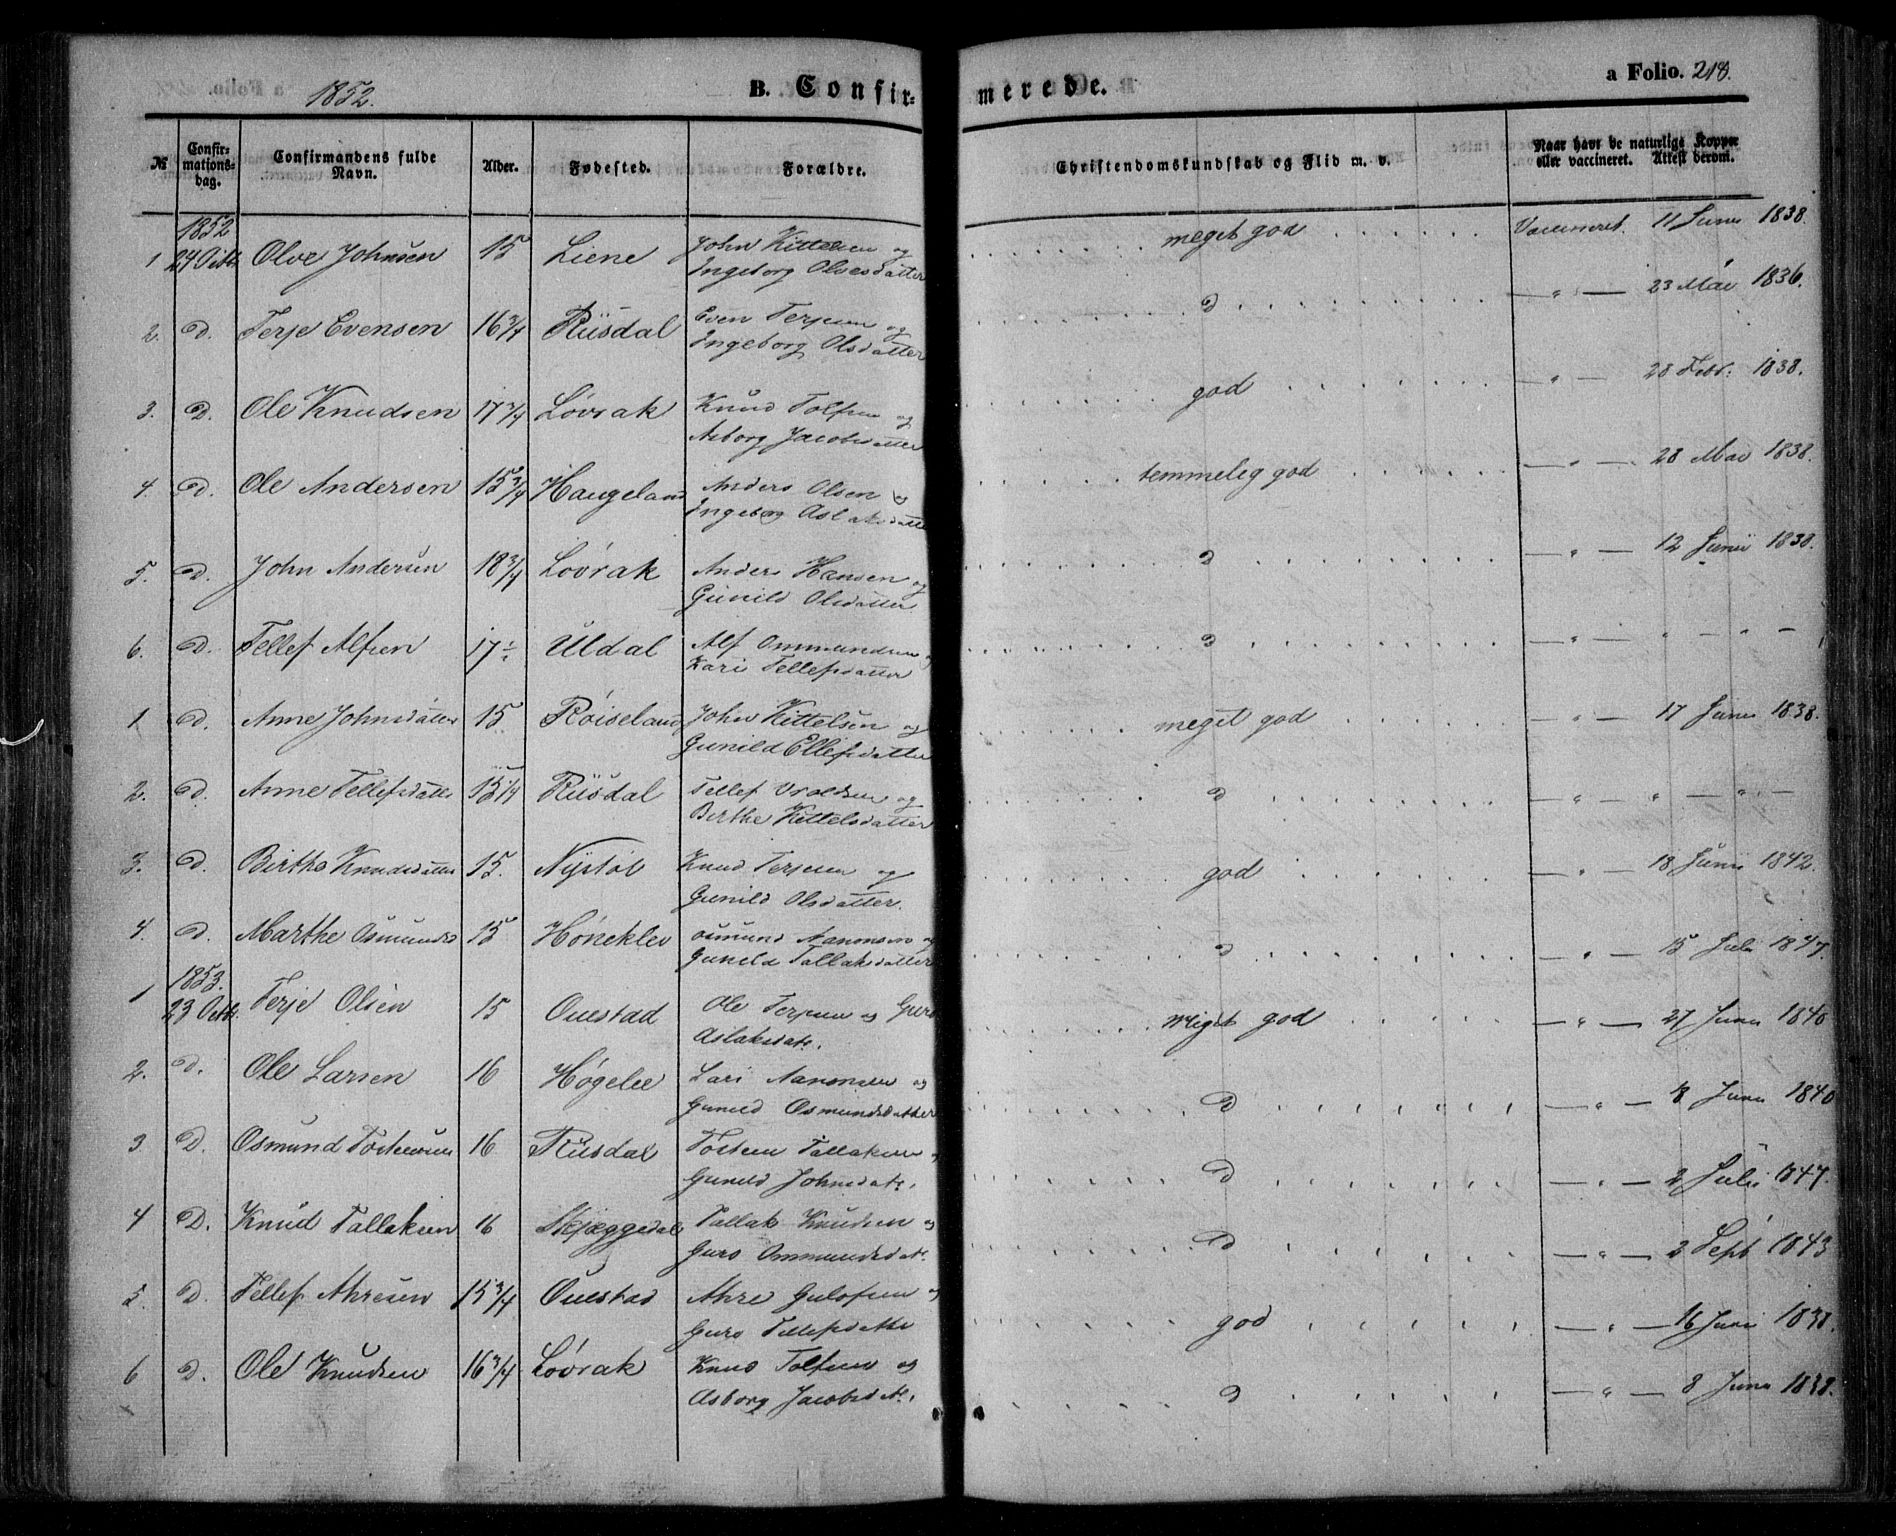 1852.
B. Confirmerede.
a Folio. 218.
№ Confirmationsdag. Confirmandens fulde Navn. Alder. Fødested. Forældre. Christendomskundskab og Flid m. v. Naar havt de naturlige Kopper eller vaccineret. Attest derom.
1852
1 24 Octb. Olve Johnsen 15 Liene John Kittelsen og Ingeborg Olvesdatter meget god Vaccineret. 11 Juni 1838.
2. D. Terje Evensen 16 3/4 Rüsdal Even Terjesen og Ingeborg Olsdatter D — " — 23 Mai 1836.
3. D. Ole Knudsen 17 3/4 Løvrak Knud Tolfsen og Asborg Jacobsdatter god — " — 28 Febr. 1838.
4. D. Ole Andersen 15 3/4 Haugeland Anders Olsen og Ingeborg Aslaksdatter temmelig god — " — 28 Mai 1838.
5. D. John Andersen 18 3/4 Løvrak Anders Hansen og Gunild Olsdatter D — " — 12 Junii 1838.
6. D. Tellef Alfsen 17 Uldal Alf Ommundsen og Kari Tellefsdatter D — " — " — " —
1. D. Anne Johnsdatter 15 Røiseland John Kittelsen og Gunild Ellefsdatter meget god — " — 17 Juni 1838.
2. D. Anne Tellefsdatter 15 1/4 Rüsdal Tellef Vraldsen og Birthe Kittelsdatter D — " — " — " —
3. D. Birthe Knudsdatter 15. Nystøl Knud Terjesen og Gunild Olsdatter. god — " — 18 Juni 1842.
4. D. Marthe Osmundsd 15 Høneklev Osmund Aanonsen og Gunild Tallaksdatter D — " — 15 Juli 1847.
1853.
1 23 Octb. Terje Olsen 15 Ouestad Ole Terjesen og Guro Aslaksdatr. Meget god — " — 27 Juni 1840
2. D. Ole Larsen 16 Høgelie Lars Aanonsen og Gunild Osmundsdatter D — " — 8 Juni 1840
3 D. Osmund Tostensen 16 Rüsdal Tosten Tallaksen og Gunild Johnsdatr. D — " — 2 Juli 1847.
4 D. Knud Tallaksen 16 Skjæggedal Tallak Knudsen og Guro Ommundsdatr. D — " — 2 Septb 1843
5. D. Tellef Ahresen 15 3/4 Ouestad Ahre Gulofsen og Guro Tellefsdatter god — " — 16 Juni 1838.
6 D. Ole Knudsen 16 3/4 Løvrak Knud Tolfsen og Asborg Jacobsdatr. D — " — 8 Juni 1838.